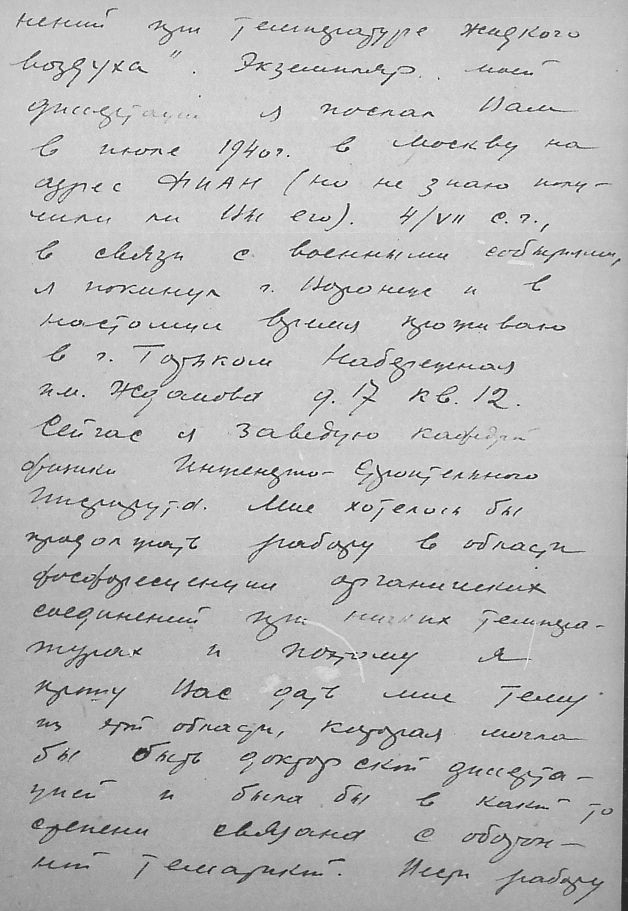 нений при температуре жидкого
воздуха". Экземпляр моей
диссертации я послал Вам
в июле 1940г. в Москву на
адрес ФИАН (но не знаю полу-
чили ли Вы его). 4/VII с.г.,
в связи с военными событиями,
я покинул г. Воронеж и в
настоящее время проживаю
в г. Горьком Набережная
им. Жданова д. 17 кв. 12.
Сейчас я заведую кафедрой
физики Инженерно-Строительного
Института. Мне хотелось бы
продолжать работу в области
фосфоресценции органических
соединений при низких темпера-
турах и поэтому я
прошу Вас дать мне тему
из этой области, которая могла
бы быть докторской диссерта-
цией и была бы в какой то
степени связана с оборон-
ной тематикой. работу